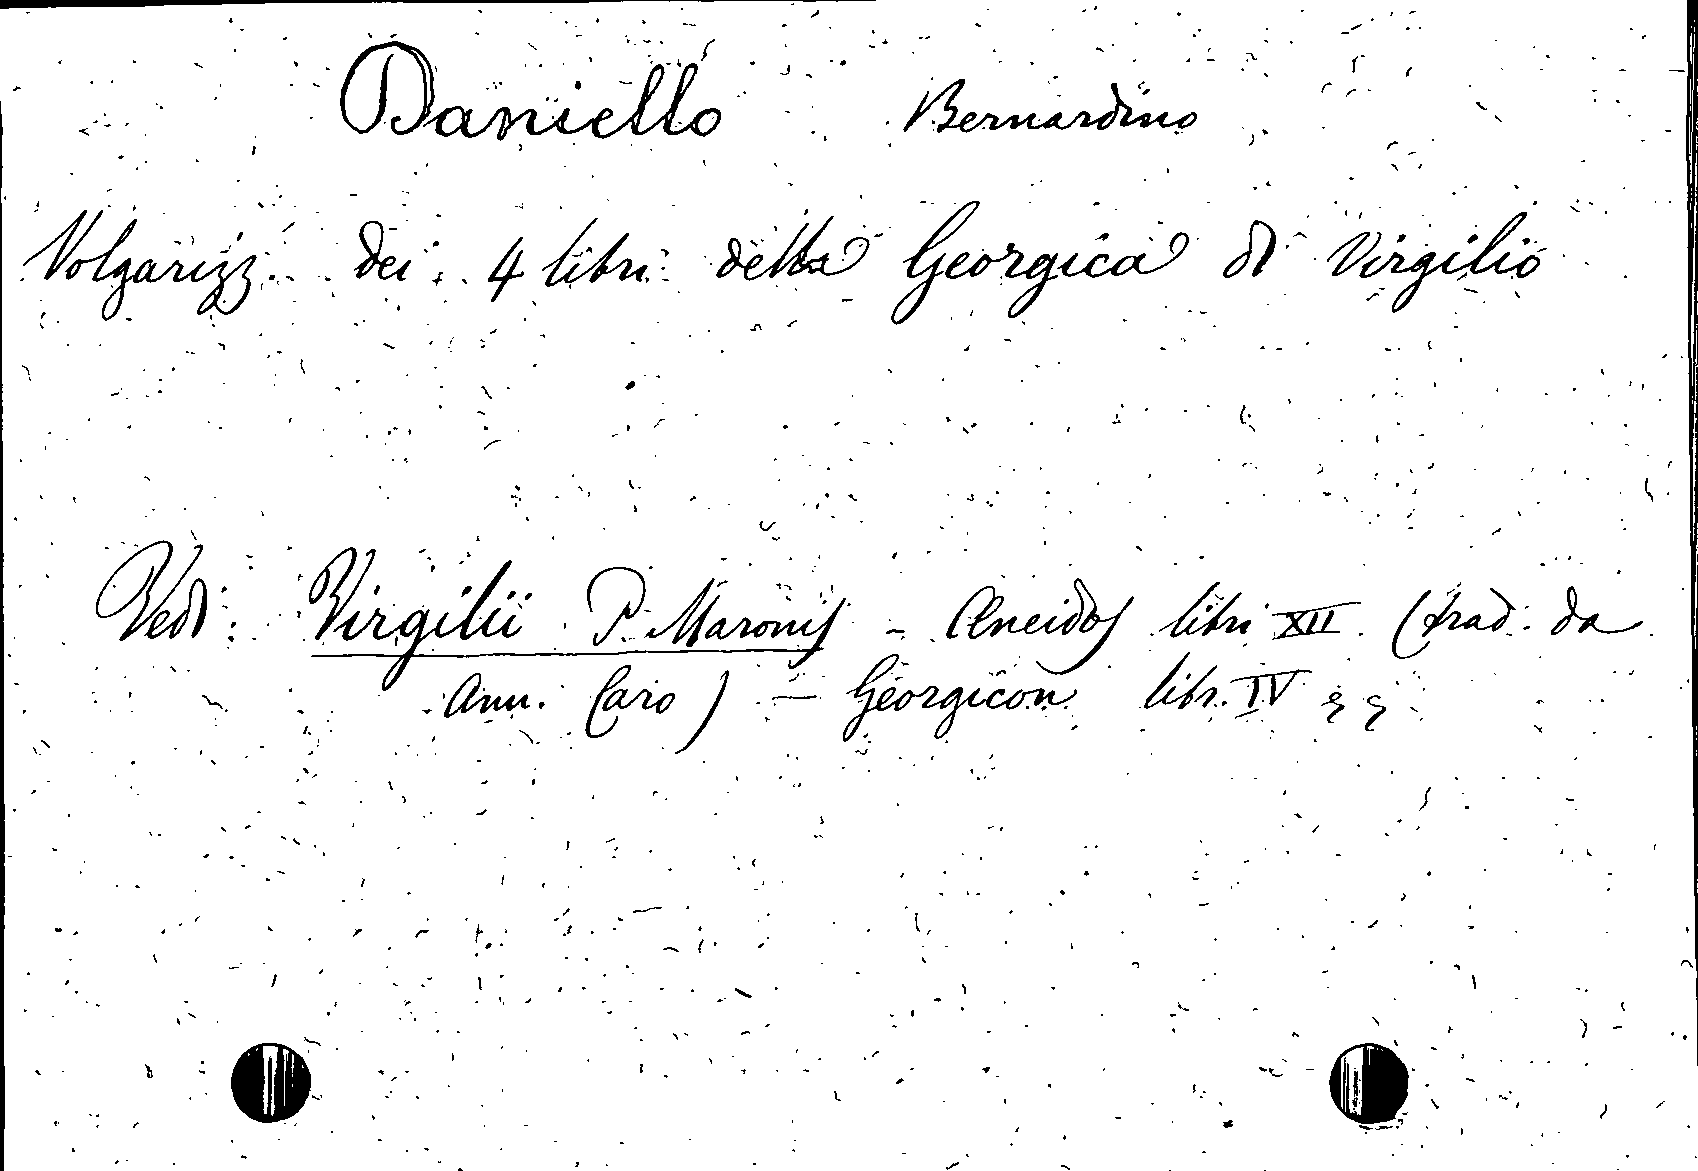 Daniello Bernardino
Volgarizz. dei 4 libri della Georgica di Virgilio
Vedi: Virgilii P. Maronis - Aneidos libri XII (trad. da
Ann. Caro) - Georgicon libr. IV